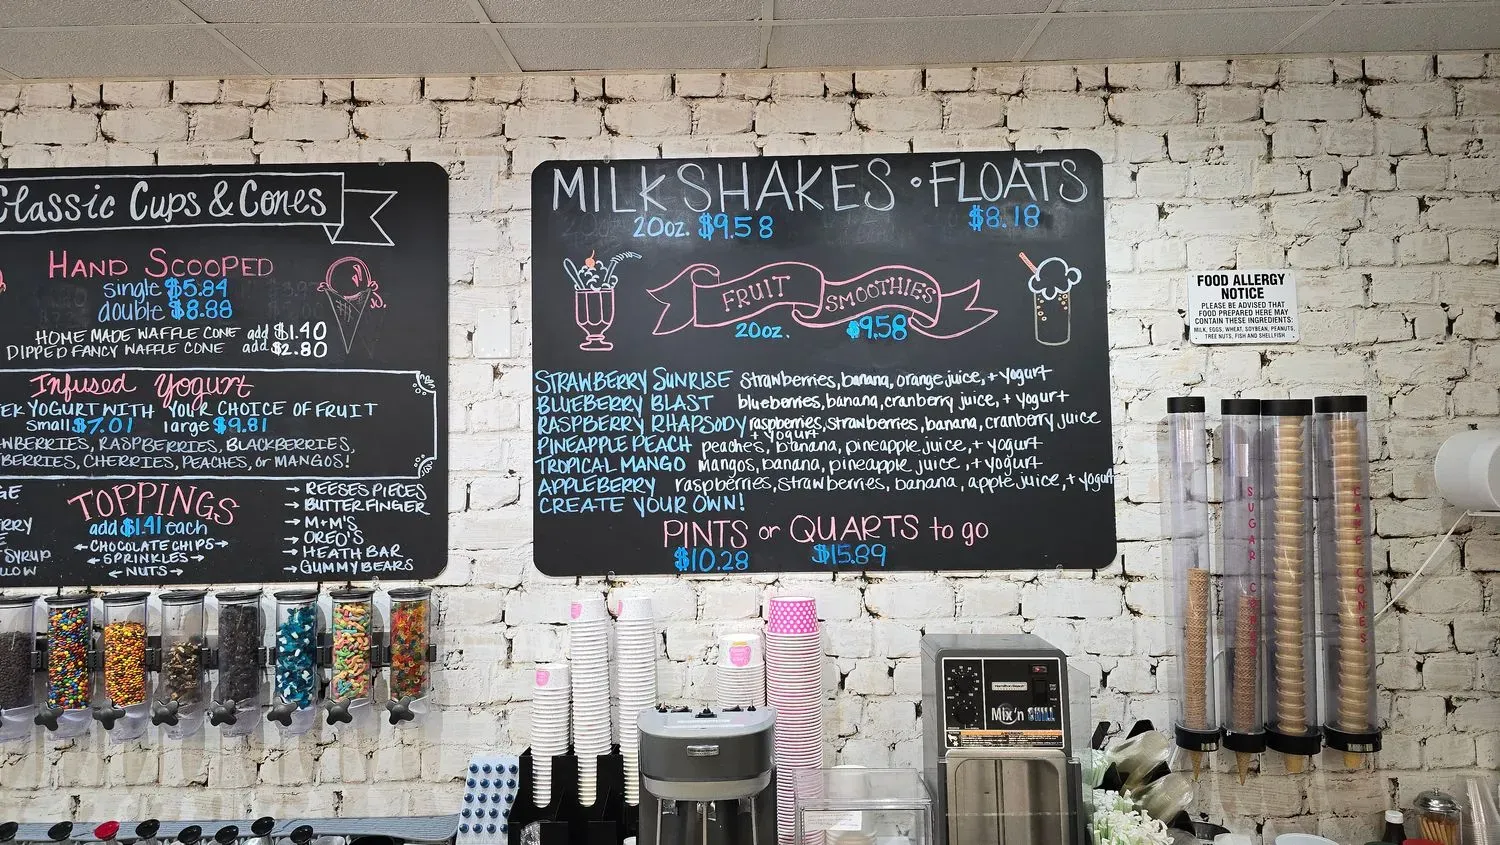 Classic Cups & Cones
HAND SCOOPED
single $5.84
double $8.88
HOME MADE WAFFLE CONE add $1.40
DIPPED FANCY WAFFLE CONE add $2.80
Infused Yogurt
YOGURT WITH YOUR CHOICE OF FRUIT
small $7.01 large $9.81
RASPBERRIES, BLACKBERRIES,
CHERRIES, PEACHES, or MANGOS!
TOPPINGS
add $1.41 each
←CHOCOLATE CHIPS→
←SPRINKLES→
←NUTS→
SYRUP
→ REESES PIECES
→ BUTTERFINGER
→ M+M'S
→ OREO'S
→ HEATH BAR
→ GUMMY BEARS
MILKSHAKES • FLOATS
20oz. $9.58 $8.18
FRUIT SMOOTHIES
20oz. $9.58
STRAWBERRY SUNRISE strawberries, banana, orange juice, + yogurt
BLUEBERRY BLAST blueberries, banana, cranberry juice, + yogurt
RASPBERRY RHAPSODY raspberries, strawberries, banana, cranberry juice
+ yogurt
PINEAPPLE PEACH peaches, banana, pineapple juice, + yogurt
TROPICAL MANGO mangos, banana, pineapple juice, + yogurt
APPLEBERRY raspberries, strawberries, banana, apple juice, + yogurt
CREATE YOUR OWN!
PINTS or QUARTS to go
$10.28 $15.89
FOOD ALLERGY
NOTICE
PLEASE BE ADVISED THAT
FOOD PREPARED HERE MAY
CONTAIN THESE INGREDIENTS:
MILK, EGGS, WHEAT, SOYBEAN, PEANUTS,
TREE NUTS, FISH AND SHELLFISH
SUGAR CONES
CAKE CONES
Hamilton Beach
Mix'n CHILL